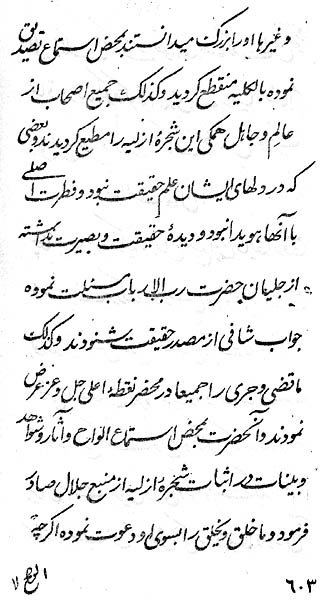 و غیرها او را بزرگ میدانستند بمحض استماع تصدیق
نموده بالکلیه منقطع گردید و کذلک جمیع اصحاب از
عالم و جاهل همگی این شجرهٔ ازلیه را مطیع گردیدند و بعضی
که در دلهای ایشان علم حقیقت نبود و فطرت اصلی
با آنها هویدا نبود و دیدهٔ حقیقت و بصیرت نداشته
از جلیعان حضرت رب الارباب مسئلت نموده
جواب شافی از مصدر حقیقت شنودند و کذلک
ما قضی و جری را جمیعا در محضر نقطهٔ اعلی جل و عز عرض
نمودند و آنحضرت بمحض استماع الواح و آثار و شواهد
و بینات در اثبات شجرهٔ ازلیه از منبع جلال صادر
فرمود و ما خلق و یخلق را بسوی او دعوت نموده اگر چه
۶۰۳